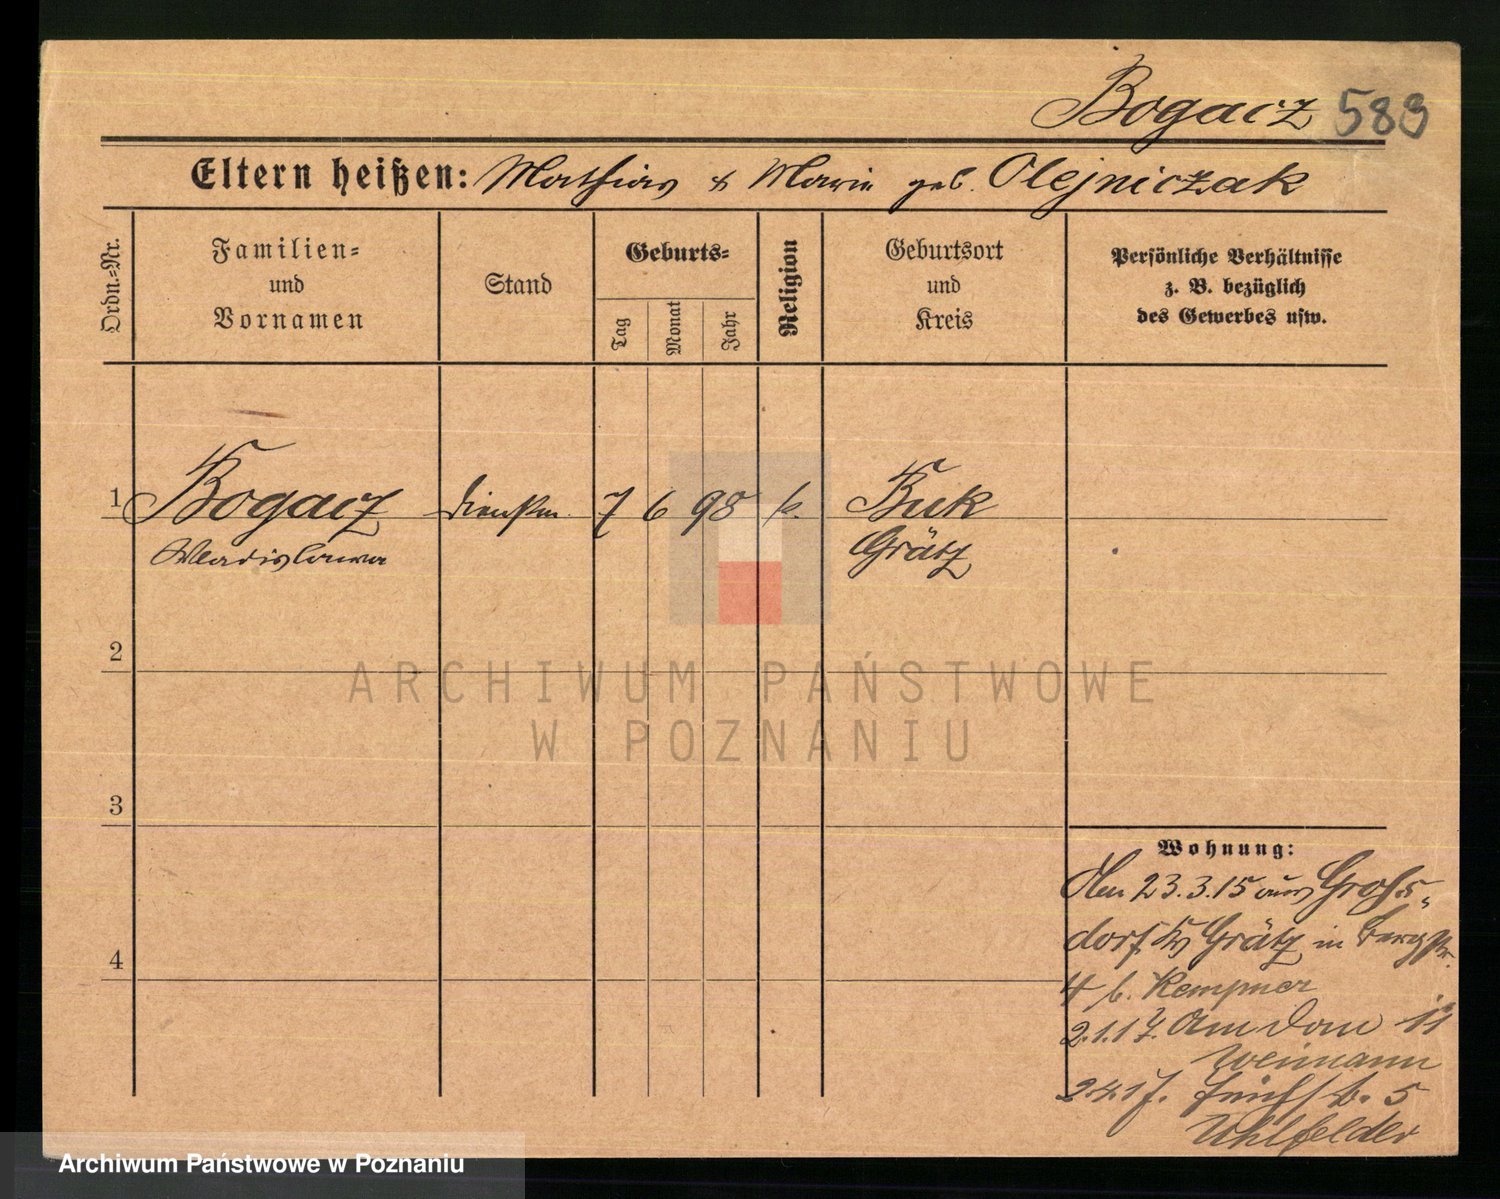 Bogacz 583
Eltern heißen: Mathias & Marie geb. Olejniczak
Ordn.=Nr.
Familien=
und
Vornamen
Stand
Geburts=
Tag
Monat
Jahr
Religion
Geburtsort
und
Kreis
Persönliche Verhältnisse
z. B. bezüglich
des Gewerbes usw.
1 Bogacz Dienstm. 7 6 98 k. Buk
Wladislawa Grätz
2
ARCHIWUM PAŃSTWOWE
W POZNANIU
3
Wohnung:
Den 23.3.15 aus Großs
dorf Kr Grätz in Bergstr.
4
4 b. Kempner
2.1.17. Am Dom 11
Weimann
2.4.17. b. 5
Uhlfelder
Archiwum Państwowe w Poznaniu